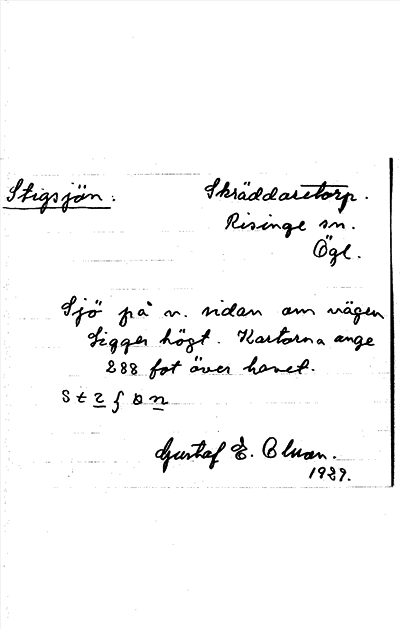 Stigsjön:
Skräddaretorp.
Risinge sn.
Ögl.
Sjö på v. sidan om vägen
Ligger högt. Kartorna ange
288 fot över havet.
Gustaf E.
1929.